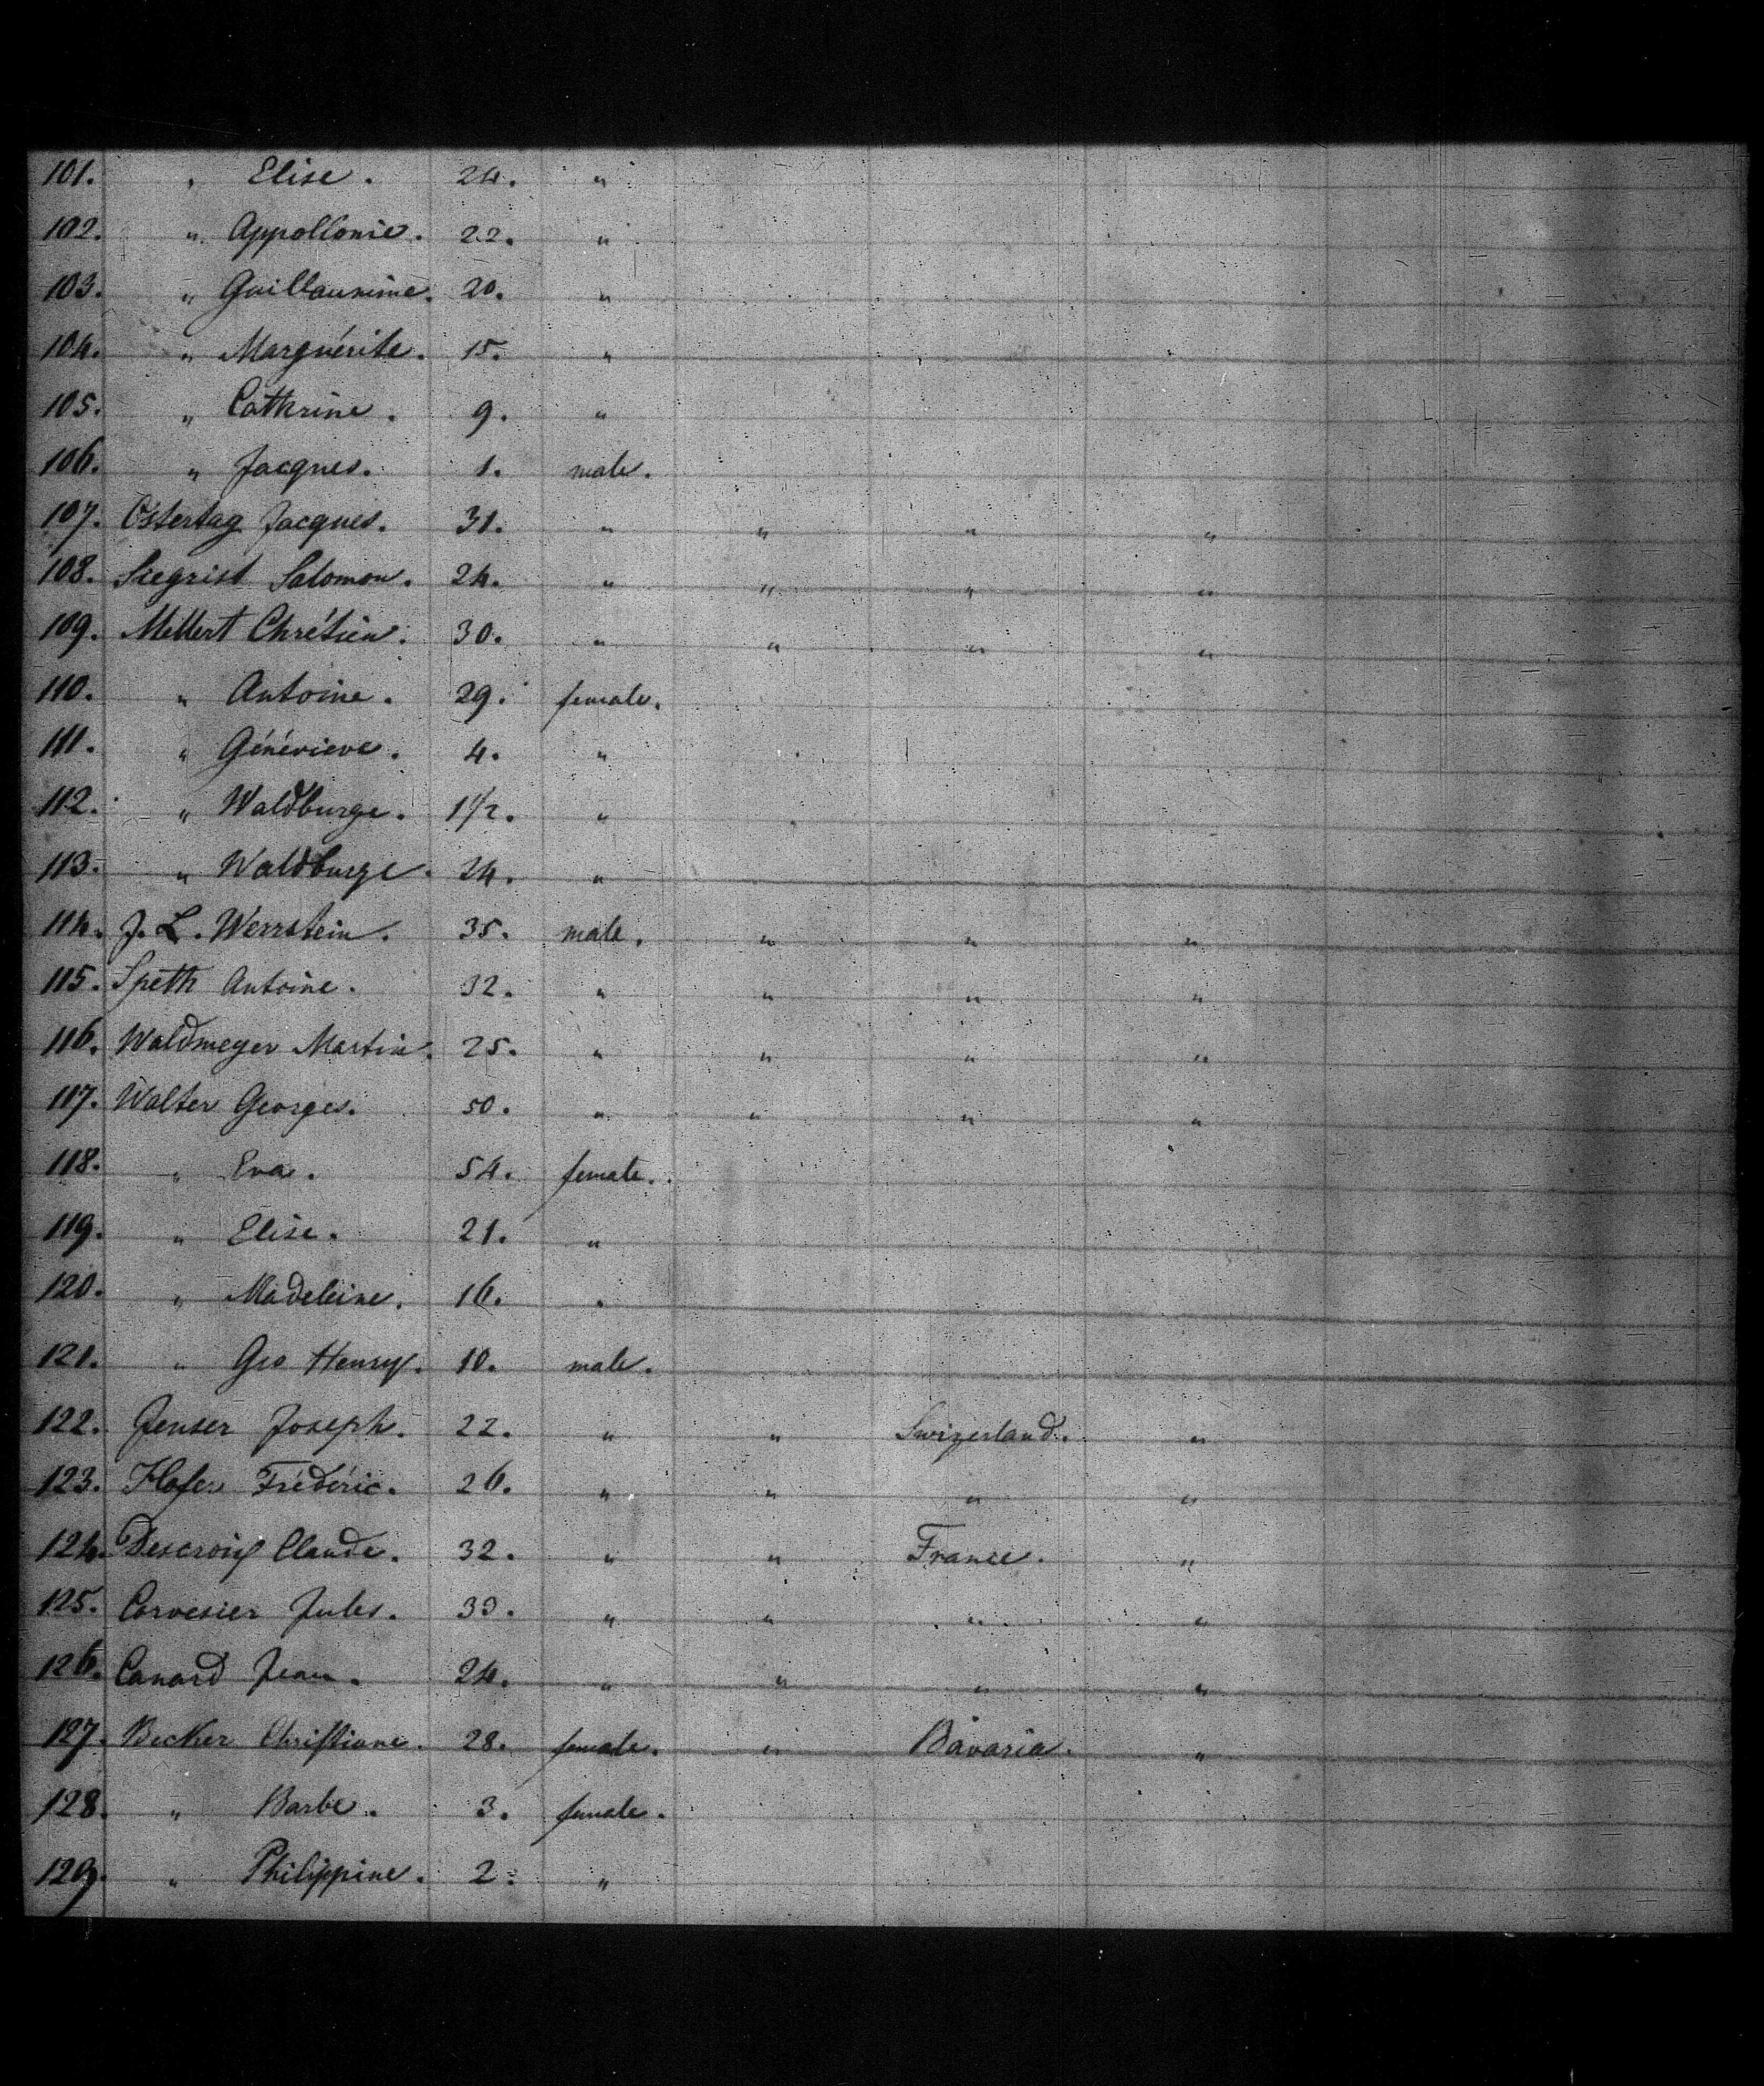 101. " Elise. 24. "
102. " Appollonie. 22. "
103. " Guillaumine. 20. "
104. " Marguérite. 15. "
105. " Cathrine. 9. "
106. " Jacques. 1. male.
107. Ostertag Jacques. 31. " " " "
108. Siegrist Salomon. 24. " " " "
109. Mellert Chrétien. 30. " " " "
110. " Antoine. 29. female.
111. " Généviève. 4. "
112. " Waldburge. 1 1/2. "
113. " Waldburge. 24. "
114. J. L. Werrstein. 35. male. " " "
115. Speth Antoine. 32. " " " "
116. Waldmeyer Martin. 25. " " " "
117. Walter Georges. 50. " " " "
118. " Eva. 54. female.
119. " Elise. 21. "
120. " Madeleine. 16. "
121. " Geo Henry. 10. male.
122. Jenser Joseph. 22. " " Swizerland. "
123. Hofer Fréderic. 26. " " " "
124. Descroix Claude. 32. " " France. "
125. Corvesier Jules. " " " "
126. Canard Jean. 24. " " " "
127. Becker Christiane. 28. female. " Bavaria. "
128. " Barbe. 3. female.
129. " Philippine. 2. "